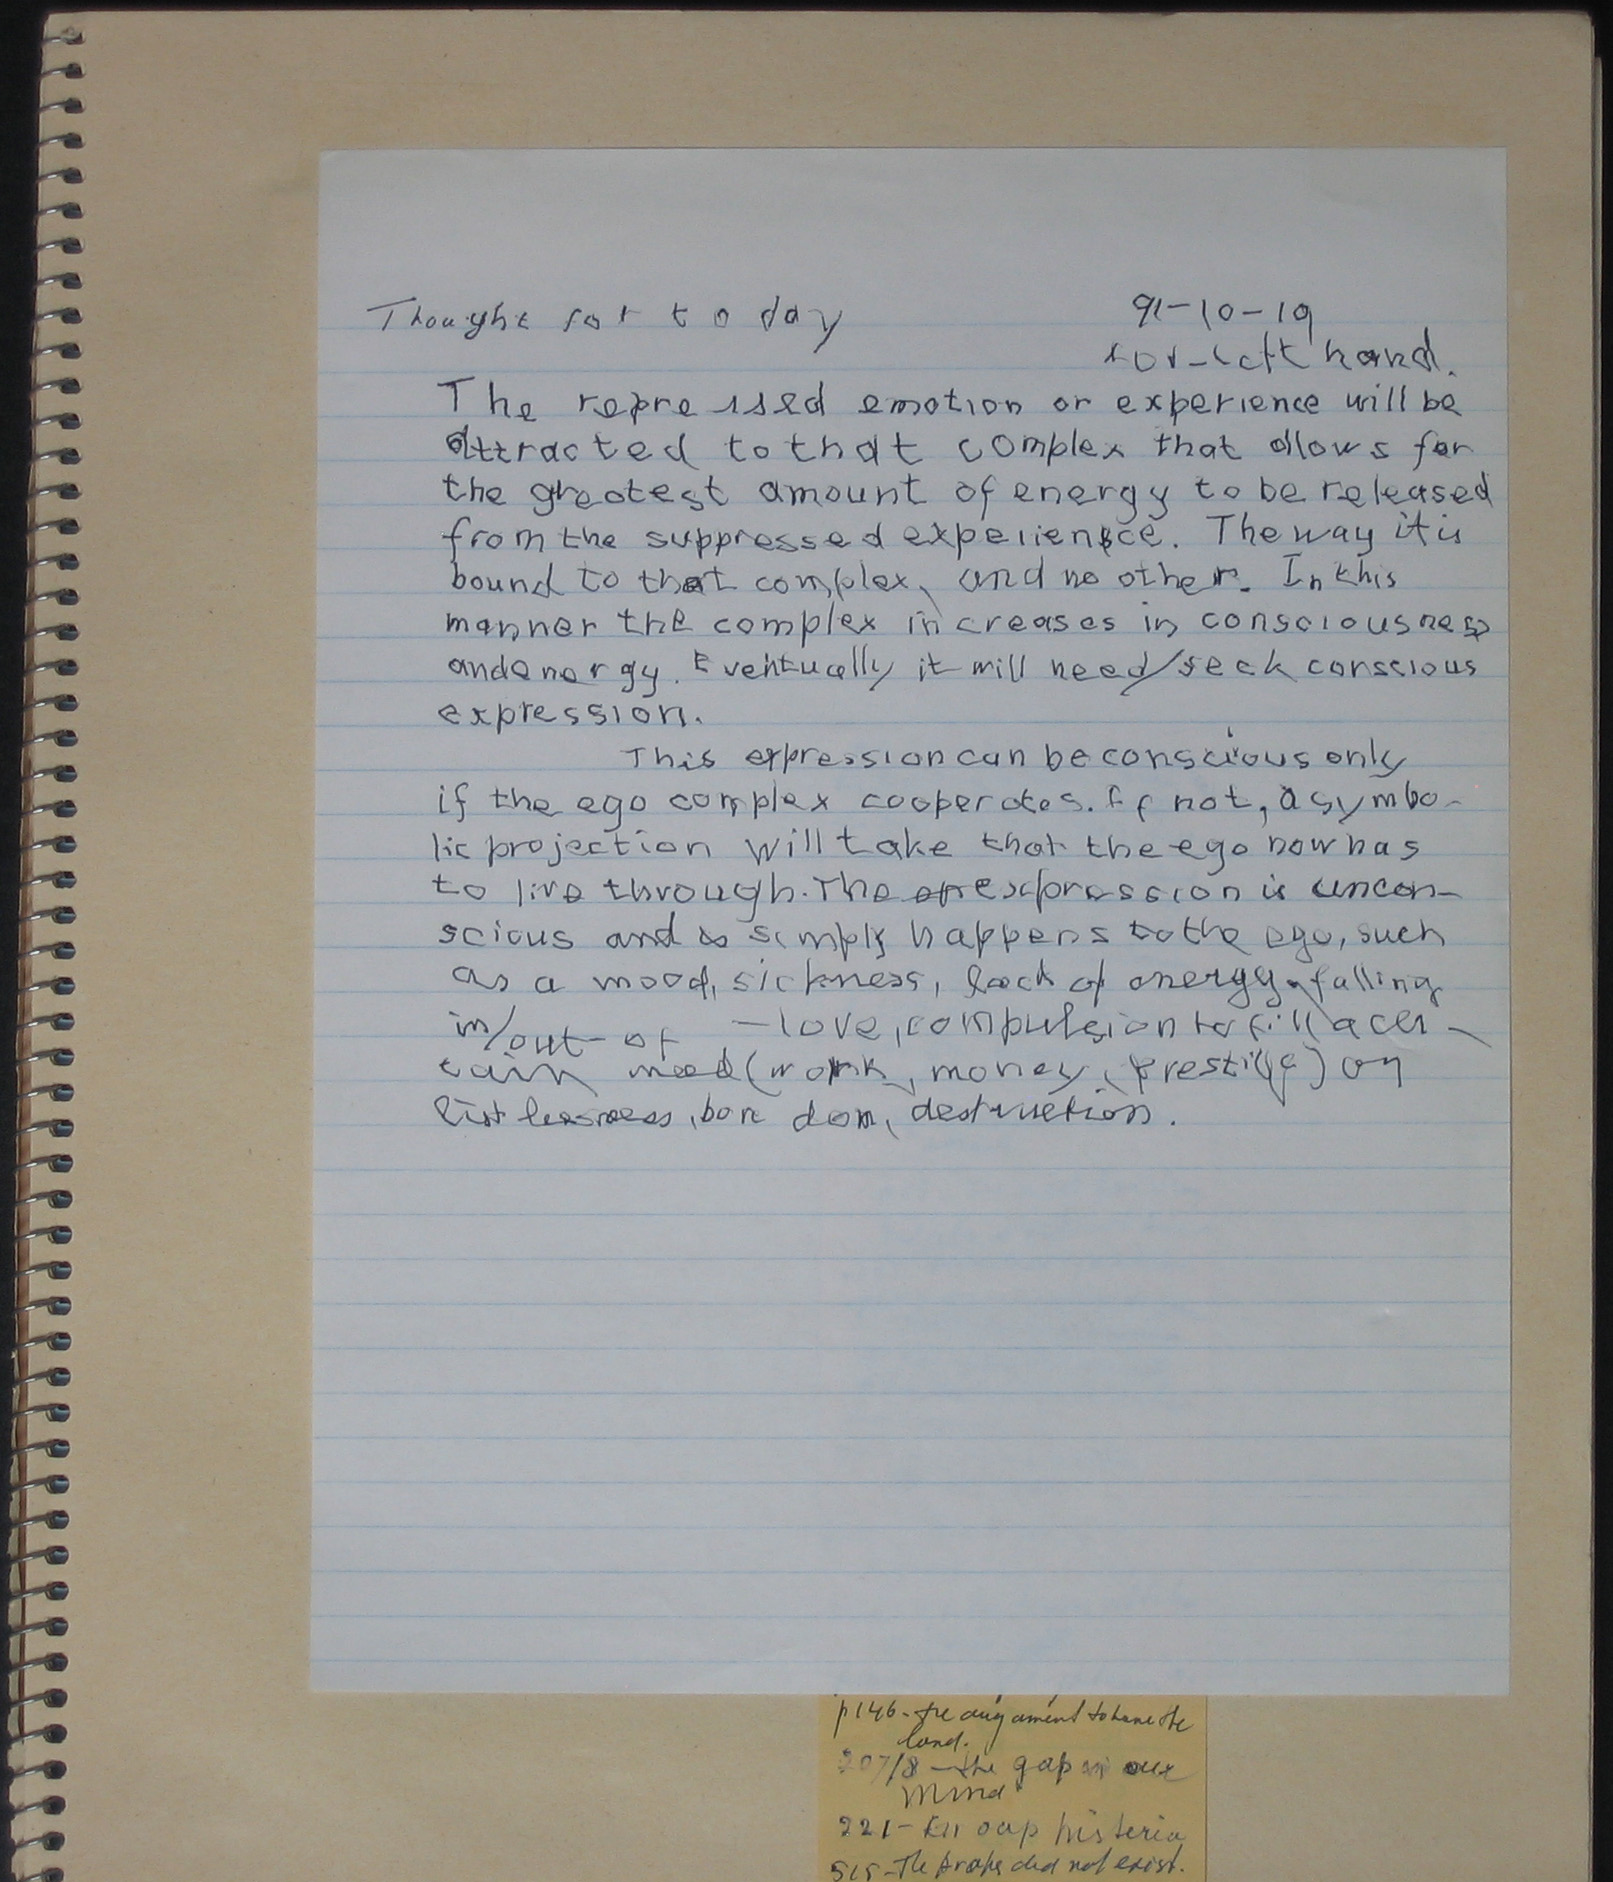 Thought for today 91-10-19
for-left hand.
The repressed emotion or experience will be
attracted to that complex that allows for
the greatest amount of energy to be released
from the suppressed experience. The way it is
bound to that complex, and no other. In this
manner the complex increases in consciousness
and energy. Eventually it will need/seek conscious
expression.
This expression can be conscious only
if the ego complex cooperates. If not, a symbo-
lic projection will take that the ego now has
to live through. The expression is uncon-
scious and so simply happens to the ego, such
as a mood, sickness, lack of energy, falling
in/out-of -love, compulsion to fill a cer-
tain need (work, money, prestige) or
listlessness, boredom, destruction.
p146- the to have the
land.
207/8 - the gap in our
mind
221- histeria
515-The did not exist.